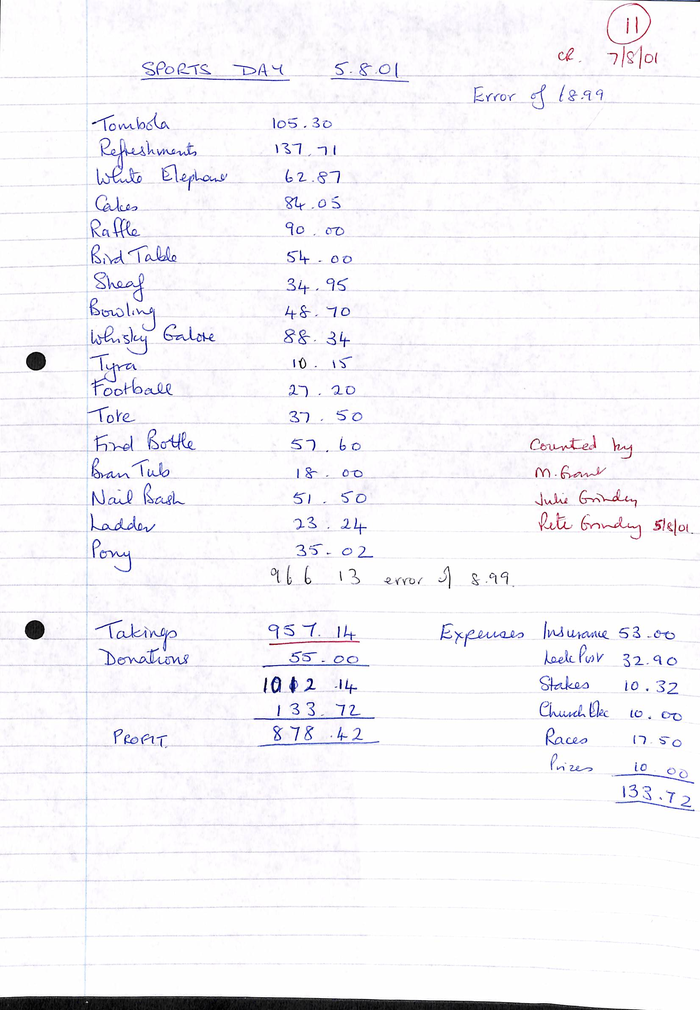 11
CR. 7/8/01
SPORTS DAY 5.8.01
Error of 18.99
Tombola 105.30
Refreshments 137.71
White Elephant 62.87
Cakes 84.05
Raffle 90.00
Bird Table 54.00
Sheaf 34.95
Bowling 48.70
Whisky Galore 88.34
Tyra 10.15
Football 27.20
Tote 37.50
Find Bottle 57.60
Counted by
Bran Tub 18.00
M. Grant
Nail Bash 51.50
Julie Grindey
Ladder 23.24
Pete Grindey 5/8/01
Pony 35.02
966 13 error of 8.99
Takings 957.14
Expenses Insurance 53.00
Donations 55.00
32.90
1012.14
Stakes 10.32
133.72
Church Elec 10.00
PROFIT. 878.42
Races 17.50
Prizes 10 00
133.72